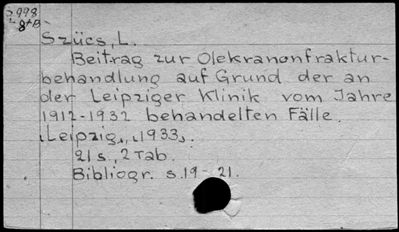 Szücs, L.
Beitrag zur Olekranonfraktur-
behandlung auf Grund der an
der Leipziger Klinik vom Jahre
1912-1932 behandelten Fälle.
Leipzig, 1933.
21 s., 2 Tab.
Bibliogr. s.19-21.